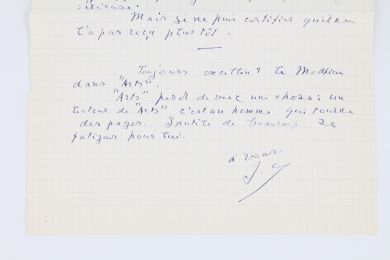 sérieuse.
Mais je ne puis certifier qu'il ne
l'a pas reçu plus tôt.
Toujours excellent le Mathieu
dans "Arts".
"Arts" perd de vue une chose : un
lecteur de "Arts" c'est un homme qui tourne
des pages. Inutile de beaucoup se
fatiguer pour lui.
à vous